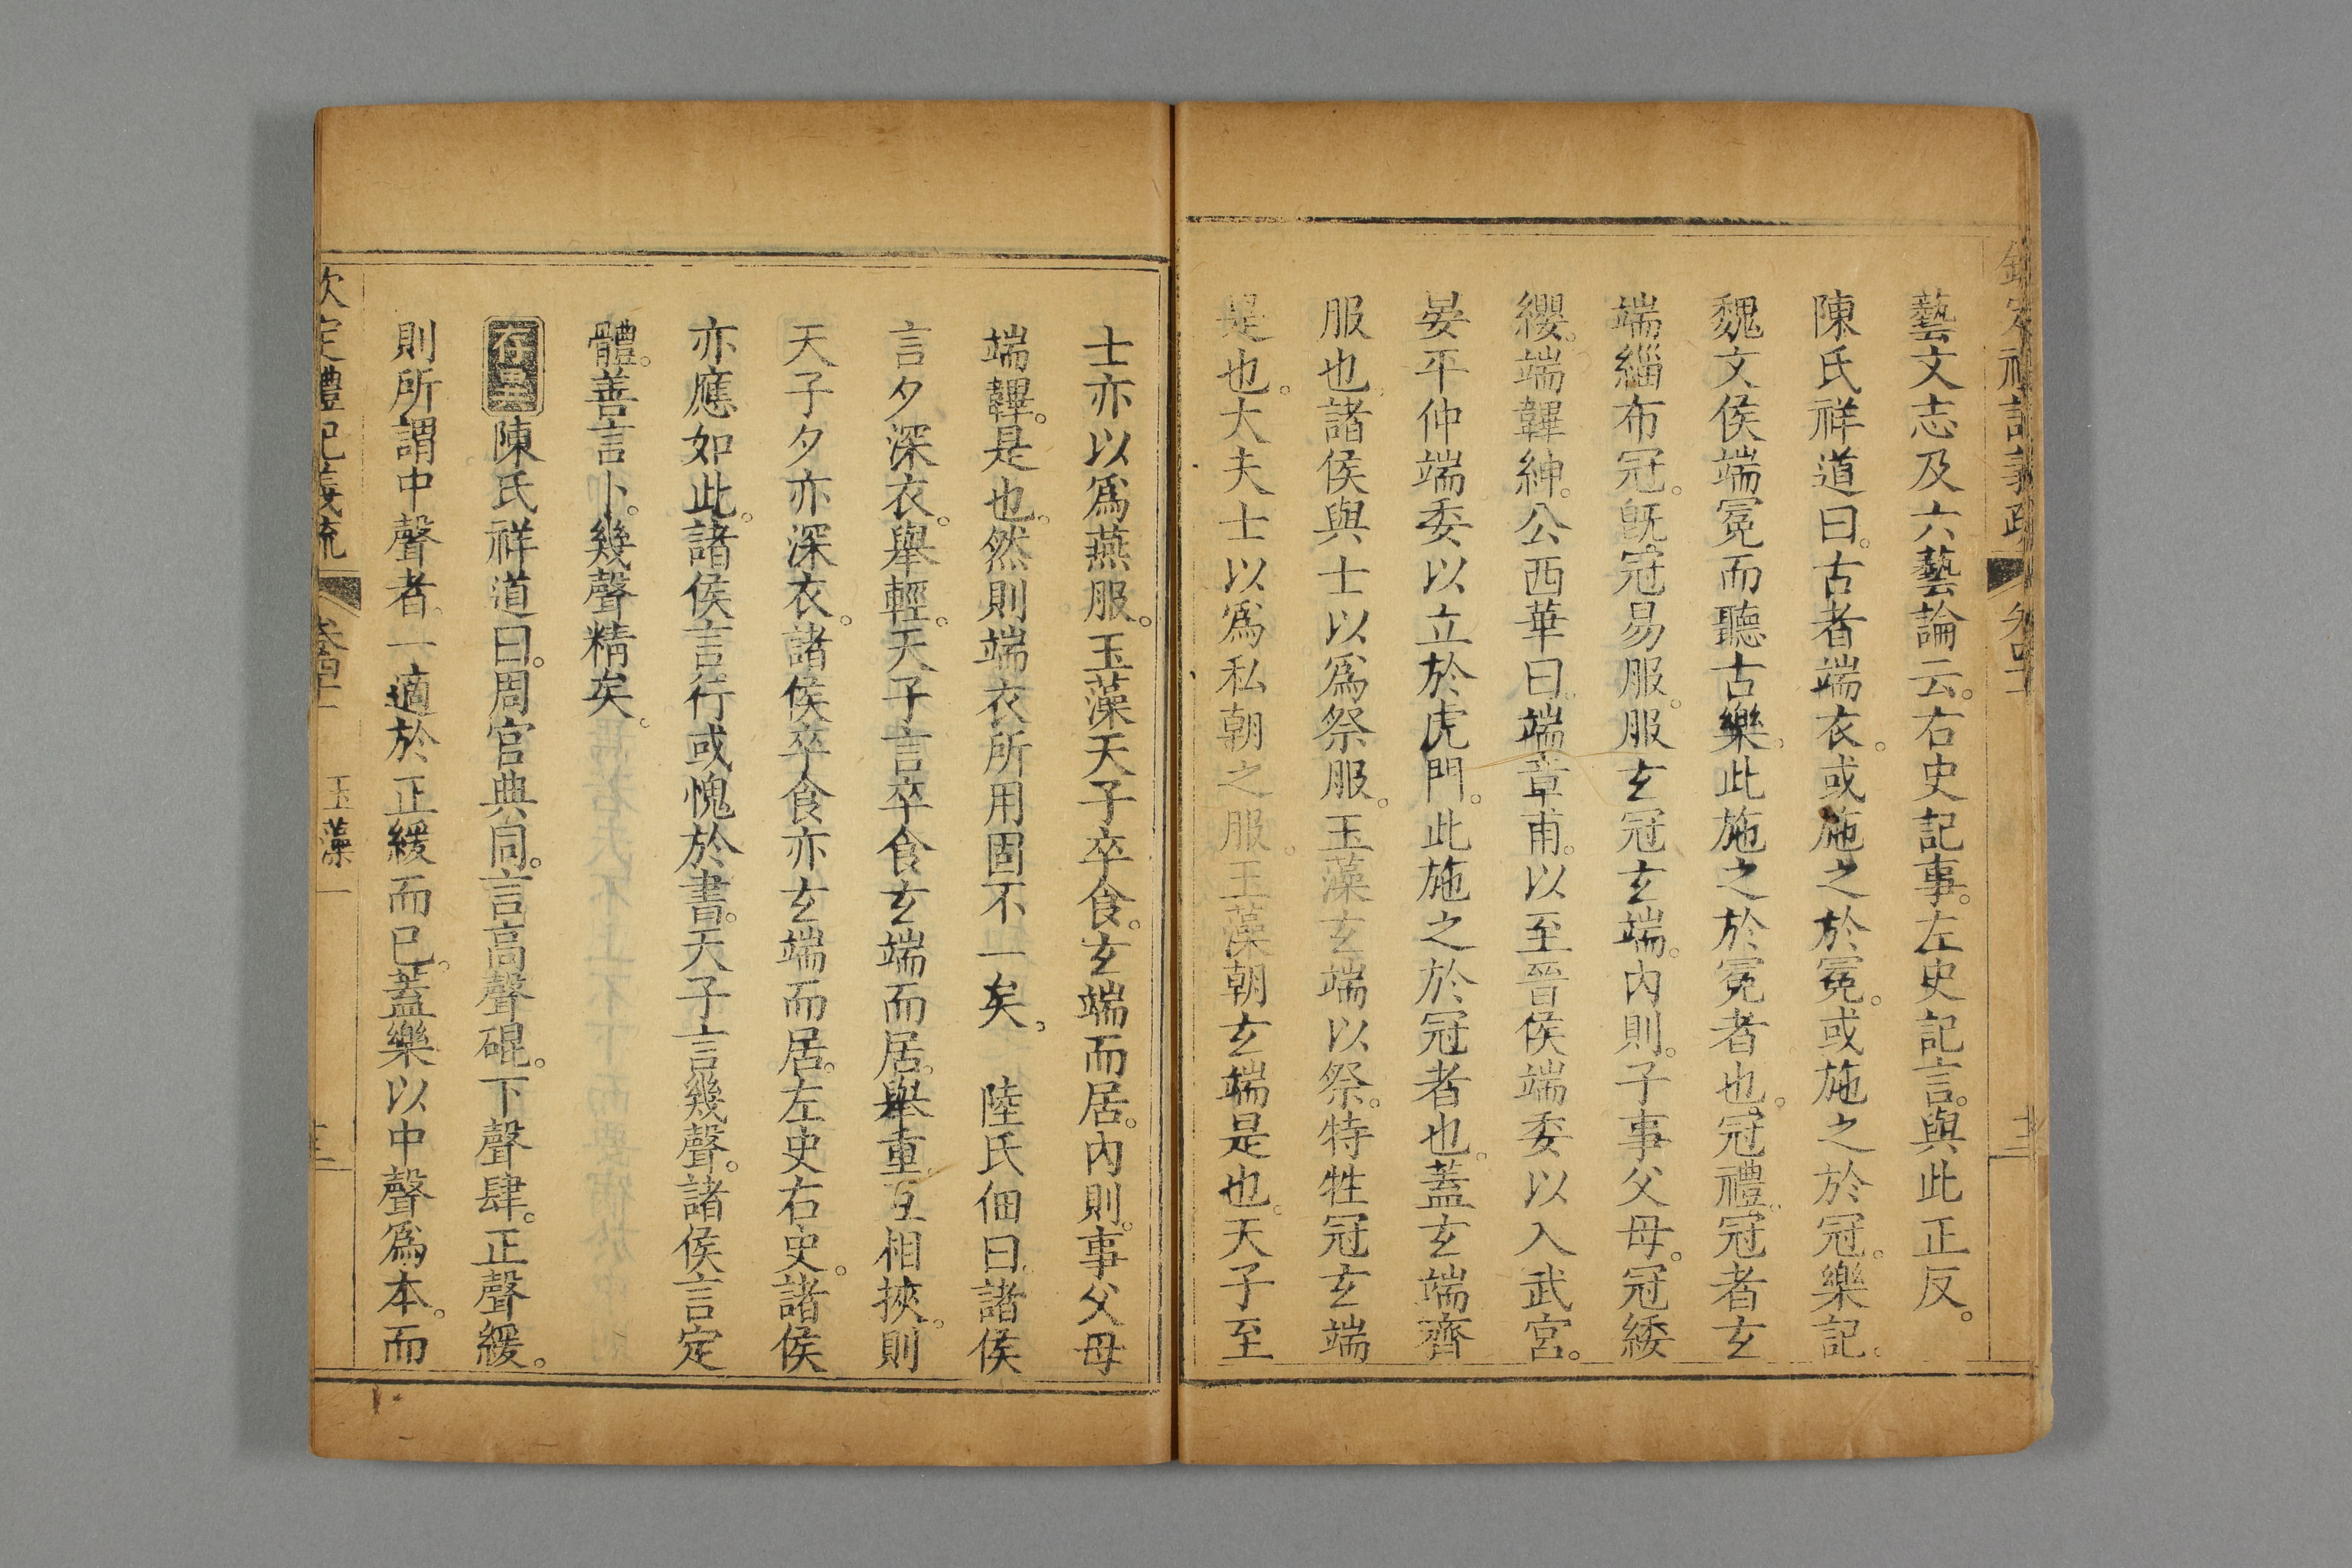 藝文志及六藝論云。右史記事。左史記言。與此正反。
陳氏祥道曰。古者端衣。或施之於冕。或施之於冠。樂記。
魏文侯端冕而聽古樂。此施之於冕者也。冠禮。冠者玄
端緇布冠。旣冠易服。服玄冠玄端。內則。子事父母。冠緌
纓。端韠紳。公西華曰。端章甫。以至晉侯端委以入武宮。
晏平仲端委以立於虎門。此施之於冠者也。蓋玄端齊
服也。諸侯與士以爲祭服。玉藻玄端以祭。特牲冠玄端
是也。大夫士以爲私朝之服。玉藻朝玄端是也。天子至
士亦以爲燕服。玉藻天子卒食。玄端而居。內則。事父母
端韠。是也。然則端衣所用固不一矣。 陸氏佃曰。諸侯
言夕深衣。舉輕。天子言卒食玄端而居。舉重。互相挾。則
天子夕亦深衣。諸侯卒食亦玄端而居。左史右史。諸侯
亦應如此。諸侯言。行或愧於書。天子言幾聲。諸侯言定
體。善言卜。幾聲精矣。
存異陳氏祥道曰。周官典同。言高聲䃂。下聲肆。正聲緩。
則所謂中聲者。一適於正緩而已。蓋樂以中聲爲本。而
欽定禮記義疏 卷四十一 玉藻一